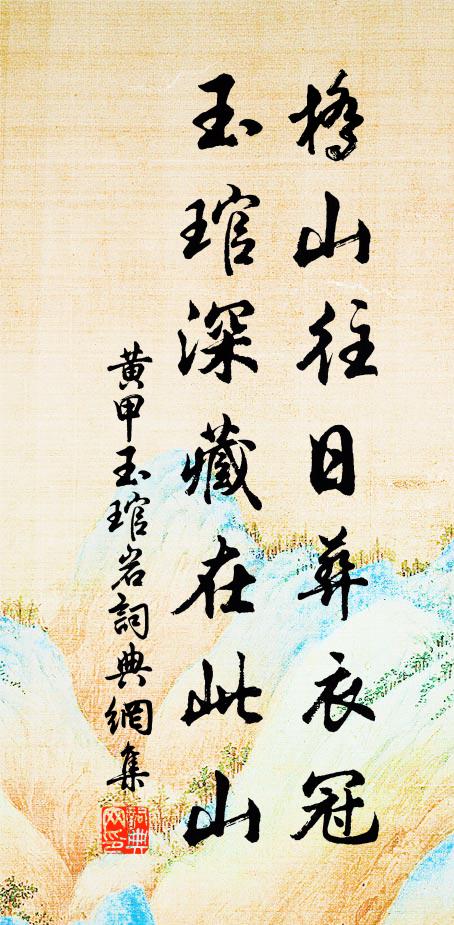 橋山往日葬衣冠
玉琯深藏在此山
黃甲玉琯岩詞典網集
詞典網印